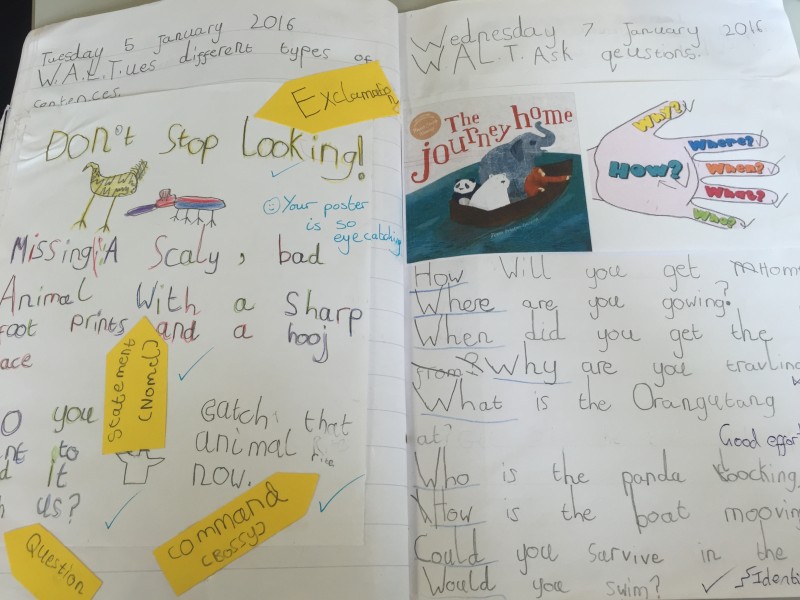 Tuesday 5 January 2016
W.A.L.T. ues different types of
sentences.
Exclamation
DON't Stop Looking!
Your poster
is so
eyecatching
Missing! A Scaly, bad
Animal With a Sharp
foot prints and a hooj
ace
Statement
(Nomel)
O you
nt to
d it
us?
Catch that
animal
now.
Question
Command
(Bossy)
Wednesday 7 January 2016
W A L.T. Ask qeustons.
The
journey home
Why?
Where?
When?
What?
Who?
How?
How Will you get Home
Where are you gowing?
When did you get the
from? Why are you travling
What is the Orangutang
at?
Good effort
Who is the panda Loocking
How is the boat mooving
Could you Survive in the
Would you swim?
Identi